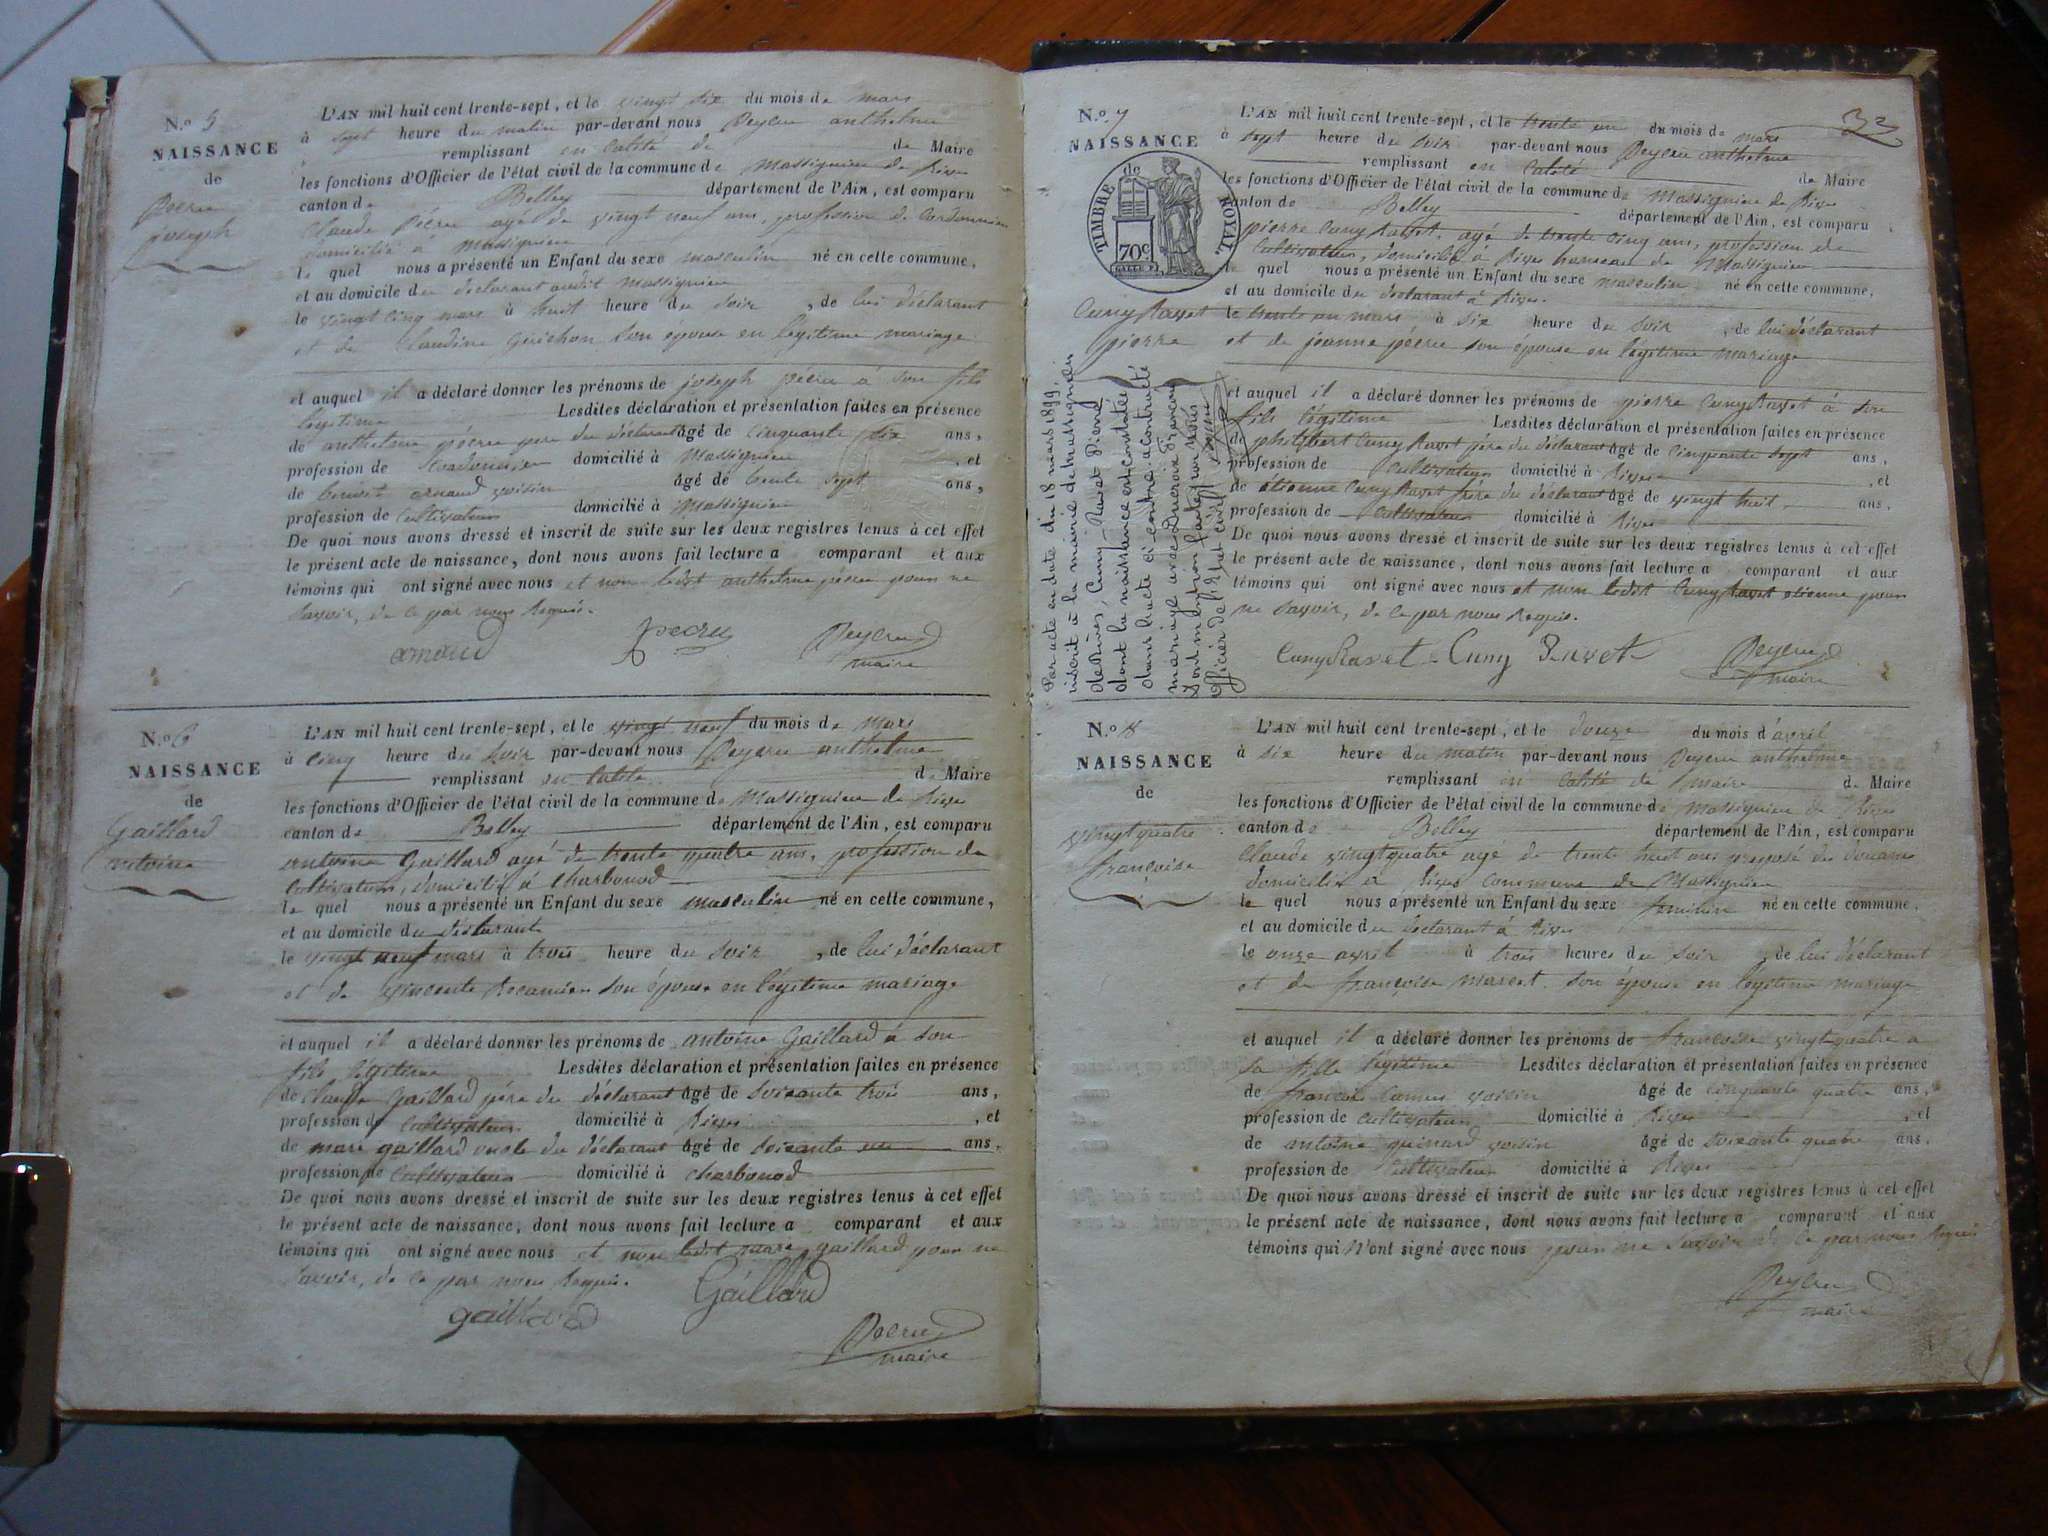 N.º 5
NAISSANCE
de
Pécru
joseph
L'AN mil huit cent trente-sept, et le vingt six du mois de mars
à sept heure du matin par-devant nous Peyeru anthelme
remplissant en calité de de Maire
les fonctions d'Officier de l'état civil de la commune de Massignieu de Rives
canton de Belley département de l'Ain, est comparu
Claude Pécru agé de vingt neuf ans, profession de Cordonnier
domicilié à Massignieu
le quel nous a présenté un Enfant du sexe masculin né en cette commune,
et au domicile du déclarant audit Massignieu
le vingt cinq mars à huit heure du soir, de lui déclarant
et de Claudine guichon son epouse en légitime mariage
et auquel il a déclaré donner les prénoms de joseph pécru à son fils
légitime Lesdites déclaration et présentation faites en présence
de anthelme pécru père du déclarant âgé de cinquante six ans,
profession de domicilié à Massignieu, et
de benoit arnaud voisin âgé de trente sept ans,
profession de Cultivateur domicilié à Massignieu
De quoi nous avons dressé et inscrit de suite sur les deux registres tenus à cet effet
le présent acte de naissance, dont nous avons fait lecture a comparant et aux
témoins qui ont signé avec nous et non ledit anthelme pécru pour ne
savoir, de ce par nous Requis.
arnaud pecru Peyeru
maire
N.º 6
NAISSANCE
de
Gaillard
antoine
L'AN mil huit cent trente-sept, et le vingt neuf du mois de Mars
à cinq heure du soir par-devant nous Peyeru anthelme
remplissant en calité de Maire
les fonctions d'Officier de l'état civil de la commune de Massignieu de Rives
canton de Belley département de l'Ain, est comparu
antoine Gaillard agé de trente quatre ans, profession de
Cultivateur, domicilié à Charbonod
le quel nous a présenté un Enfant du sexe masculin né en cette commune,
et au domicile du déclarant
le vingt neuf mars à trois heure du soir, de lui déclarant
et de vincente Recamier son épouse en légitime mariage
et auquel il a déclaré donner les prénoms de antoine Gaillard à son
fils légitime Lesdites déclaration et présentation faites en présence
de Claude Gaillard père du déclarant âgé de soixante trois ans,
profession de Cultivateur domicilié à Rives, et
de marc gaillard oncle du déclarant âgé de soixante un ans,
profession de Cultivateur domicilié à Charbonod
De quoi nous avons dressé et inscrit de suite sur les deux registres tenus à cet effet
le présent acte de naissance, dont nous avons fait lecture a comparant et aux
témoins qui ont signé avec nous et non ledit marc gaillard pour ne
savoir, de ce par nous Requis.
gaillard Gaillard
Peyeru
maire
32
N.º 7
NAISSANCE
de
TIMBRE NATIONAL
70c
Cuny Ravet
pierre
L'AN mil huit cent trente-sept, et le trente un du mois de mars
à sept heure du soir par-devant nous Peyeru anthelme
remplissant en calité de Maire
les fonctions d'Officier de l'état civil de la commune de Massignieu de Rives
canton de Belley département de l'Ain, est comparu
pierre Cuny Ravet, agé de trente cinq ans, profession de
Cultivateur, domicilié à Rives hameau de Massignieu
le quel nous a présenté un Enfant du sexe masculin né en cette commune,
et au domicile du déclarant à Rives.
le trente un mars à six heure du soir, de lui déclarant
et de jeanne pécru son épouse en légitime mariage
et auquel il a déclaré donner les prénoms de pierre Cuny Ravet à son
fils légitime Lesdites déclaration et présentation faites en présence
de philibert Cuny Ravet père du déclarant âgé de cinquante sept ans,
profession de Cultivateur domicilié à Rives, et
de étienne Cuny Ravet frère du déclarant âgé de vingt huit ans,
profession de Cultivateur domicilié à Rives
De quoi nous avons dressé et inscrit de suite sur les deux registres tenus à cet effet
le présent acte de naissance, dont nous avons fait lecture a comparant et aux
témoins qui ont signé avec nous et non ledit Cuny Ravet etienne pour
ne savoir, de ce par nous Requis.
Cuny Ravet Cuny Ravet Peyeru
maire
Par acte en date du 18 mars 1899,
inscrit à la mairie de Massignieu
de Rives, Cuny-Ravet Pierre
dont la naissance est constatée
dans l'acte ci contre a contracté
mariage avec Ducroux Françoise
Dont mention faite par nous
officier de l'état civil
N.º 8
NAISSANCE
de
vingtquatre
françoise
L'AN mil huit cent trente-sept, et le douze du mois d'avril
à six heure du matin par-devant nous Peyeru anthelme
remplissant en calité de maire de Maire
les fonctions d'Officier de l'état civil de la commune de Massignieu de Rives
canton de Belley département de l'Ain, est comparu
Claude vingtquatre agé de trente huit ans preposé des douane
domicilié à Rives commune de Massignieu
le quel nous a présenté un Enfant du sexe feminin né en cette commune,
et au domicile du déclarant à Rives
le onze avril à trois heures du soir, de lui déclarant
et de françoise marcet son épouse en légitime mariage
et auquel il a déclaré donner les prénoms de françoise vingtquatre a
sa fille légitime Lesdites déclaration et présentation faites en présence
de françois Camus voisin âgé de cinquante quatre ans,
profession de Cultivateur domicilié à Rives, et
de antoine guinard voisin âgé de soixante quatre ans,
profession de Cultivateur domicilié à Rives
De quoi nous avons dressé et inscrit de suite sur les deux registres tenus à cet effet
le présent acte de naissance, dont nous avons fait lecture a comparant et aux
témoins qui n'ont signé avec nous pour ne savoir de ce par nous Requis
Peyeru
maire